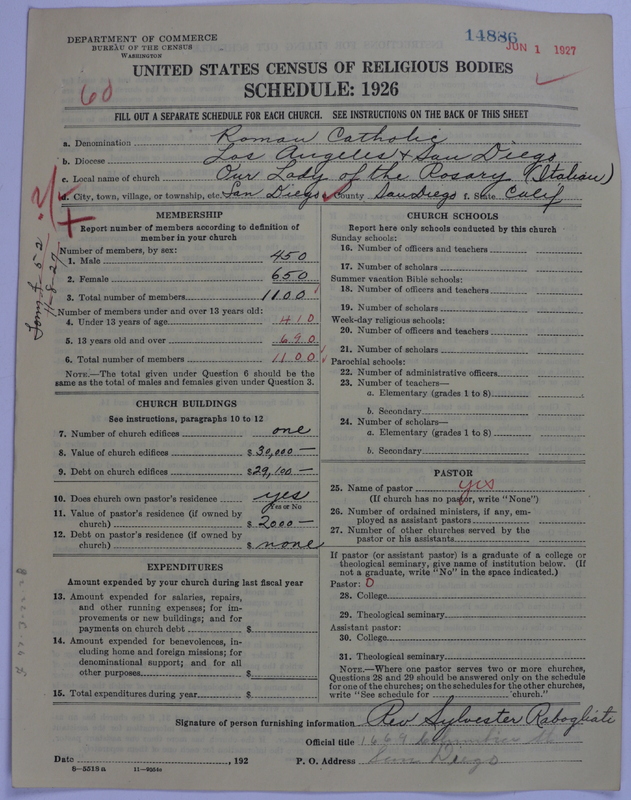 DEPARTMENT OF COMMERCE
BUREAU OF THE CENSUS
WASHINGTON
14886
JUN 1 1927
UNITED STATES CENSUS OF RELIGIOUS BODIES
SCHEDULE: 1926
60
FILL OUT A SEPARATE SCHEDULE FOR EACH CHURCH. SEE INSTRUCTIONS ON THE BACK OF THIS SHEET
a. Denomination Roman Catholic
b. Diocese Los Angeles & San Diego
c. Local name of church Our Lady of the Rosary (Italian)
d. City, town, village, or township, etc. San Diego e. County San Diego f. State Calif
MEMBERSHIP
Report number of members according to definition of
member in your church
Number of members, by sex:
1. Male 450
2. Female 650
3. Total number of members 1100
Number of members under and over 13 years old:
4. Under 13 years of age 410
5. 13 years old and over 690
6. Total number of members 1100
NOTE.—The total given under Question 6 should be
same as the total of males and females given under Question 3.
CHURCH BUILDINGS
See instructions, paragraphs 10 to 12
7. Number of church edifices one
8. Value of church edifices $30,000 —
9. Debt on church edifices $29,100 —
10. Does church own pastor's residence yes
Yes or No
11. Value of pastor's residence (if owned by
church) $ 2000 —
12. Debt on pastor's residence (if owned by
church) $ none
EXPENDITURES
Amount expended by your church during last fiscal year
13. Amount expended for salaries, repairs,
and other running expenses; for im-
provements or new buildings; and for
payments on church debt $
14. Amount expended for benevolences, in-
cluding home and foreign missions; for
denominational support; and for all
other purposes $
15. Total expenditures during year $
CHURCH SCHOOLS
Report here only schools conducted by this church
Sunday schools:
16. Number of officers and teachers
17. Number of scholars
Summer vacation Bible schools:
18. Number of officers and teachers
19. Number of scholars
Week-day religious schools:
20. Number of officers and teachers
21. Number of scholars
Parochial schools:
22. Number of administrative officers
23. Number of teachers—
a. Elementary (grades 1 to 8)
b. Secondary
24. Number of scholars—
a. Elementary (grades 1 to 8)
b. Secondary
PASTOR
25. Name of pastor yes
(If church has no pastor, write "None")
26. Number of ordained ministers, if any, em-
ployed as assistant pastors
27. Number of other churches served by the
pastor or his assistants
If pastor (or assistant pastor) is a graduate of a college or
theological seminary, give name of institution below. (If
not a graduate, write "No" in the space indicated.)
Pastor: 0
28. College
29. Theological seminary
Assistant pastor:
30. College
31. Theological seminary
NOTE.—Where one pastor serves two or more churches,
Questions 28 and 29 should be answered only on the schedule
for one of the churches; on the schedules for the other churches,
write "See schedule for church."
Signature of person furnishing information Rev Sylvester Rabogliati
Official title 1669 Columbia St
Date , 192 P. O. Address San Diego
8—5518 a 11—9054a